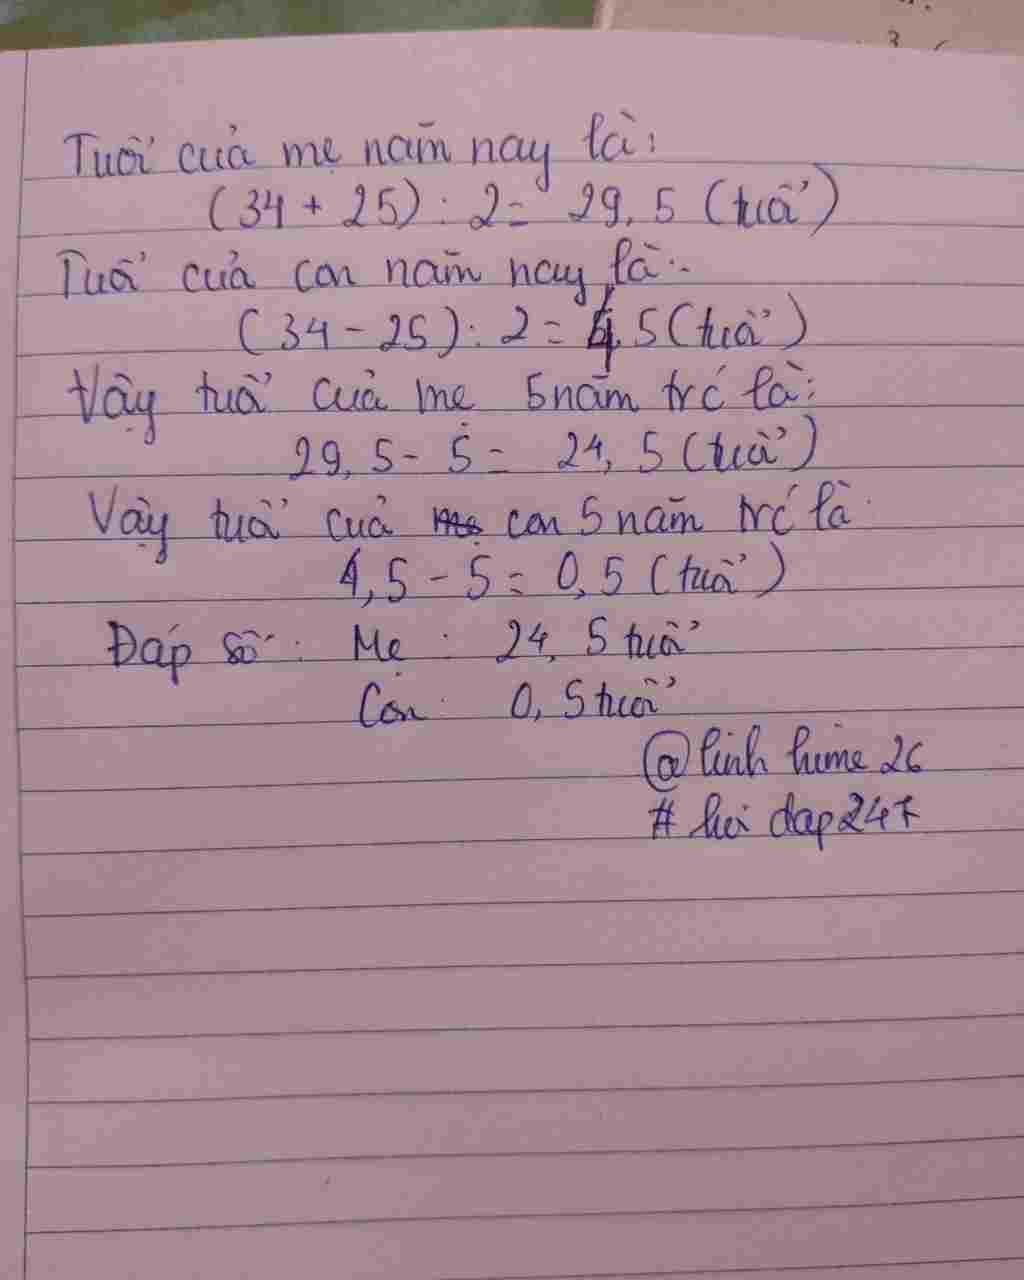 Tuổi của mẹ năm nay là:
(34 + 25) : 2 = 29,5 (tuổi)
Tuổi của con năm nay là:
(34 - 25) : 2 = 4,5 (tuổi)
Vậy tuổi của mẹ 5 năm trć là:
29,5 - 5 = 24,5 (tuổi)
Vậy tuổi của con 5 năm trć là
4,5 - 5 = 0,5 (tuổi)
Đáp số: Mẹ : 24,5 tuổi
Con : 0,5 tuổi
@linh hime 26
# hoi dap247